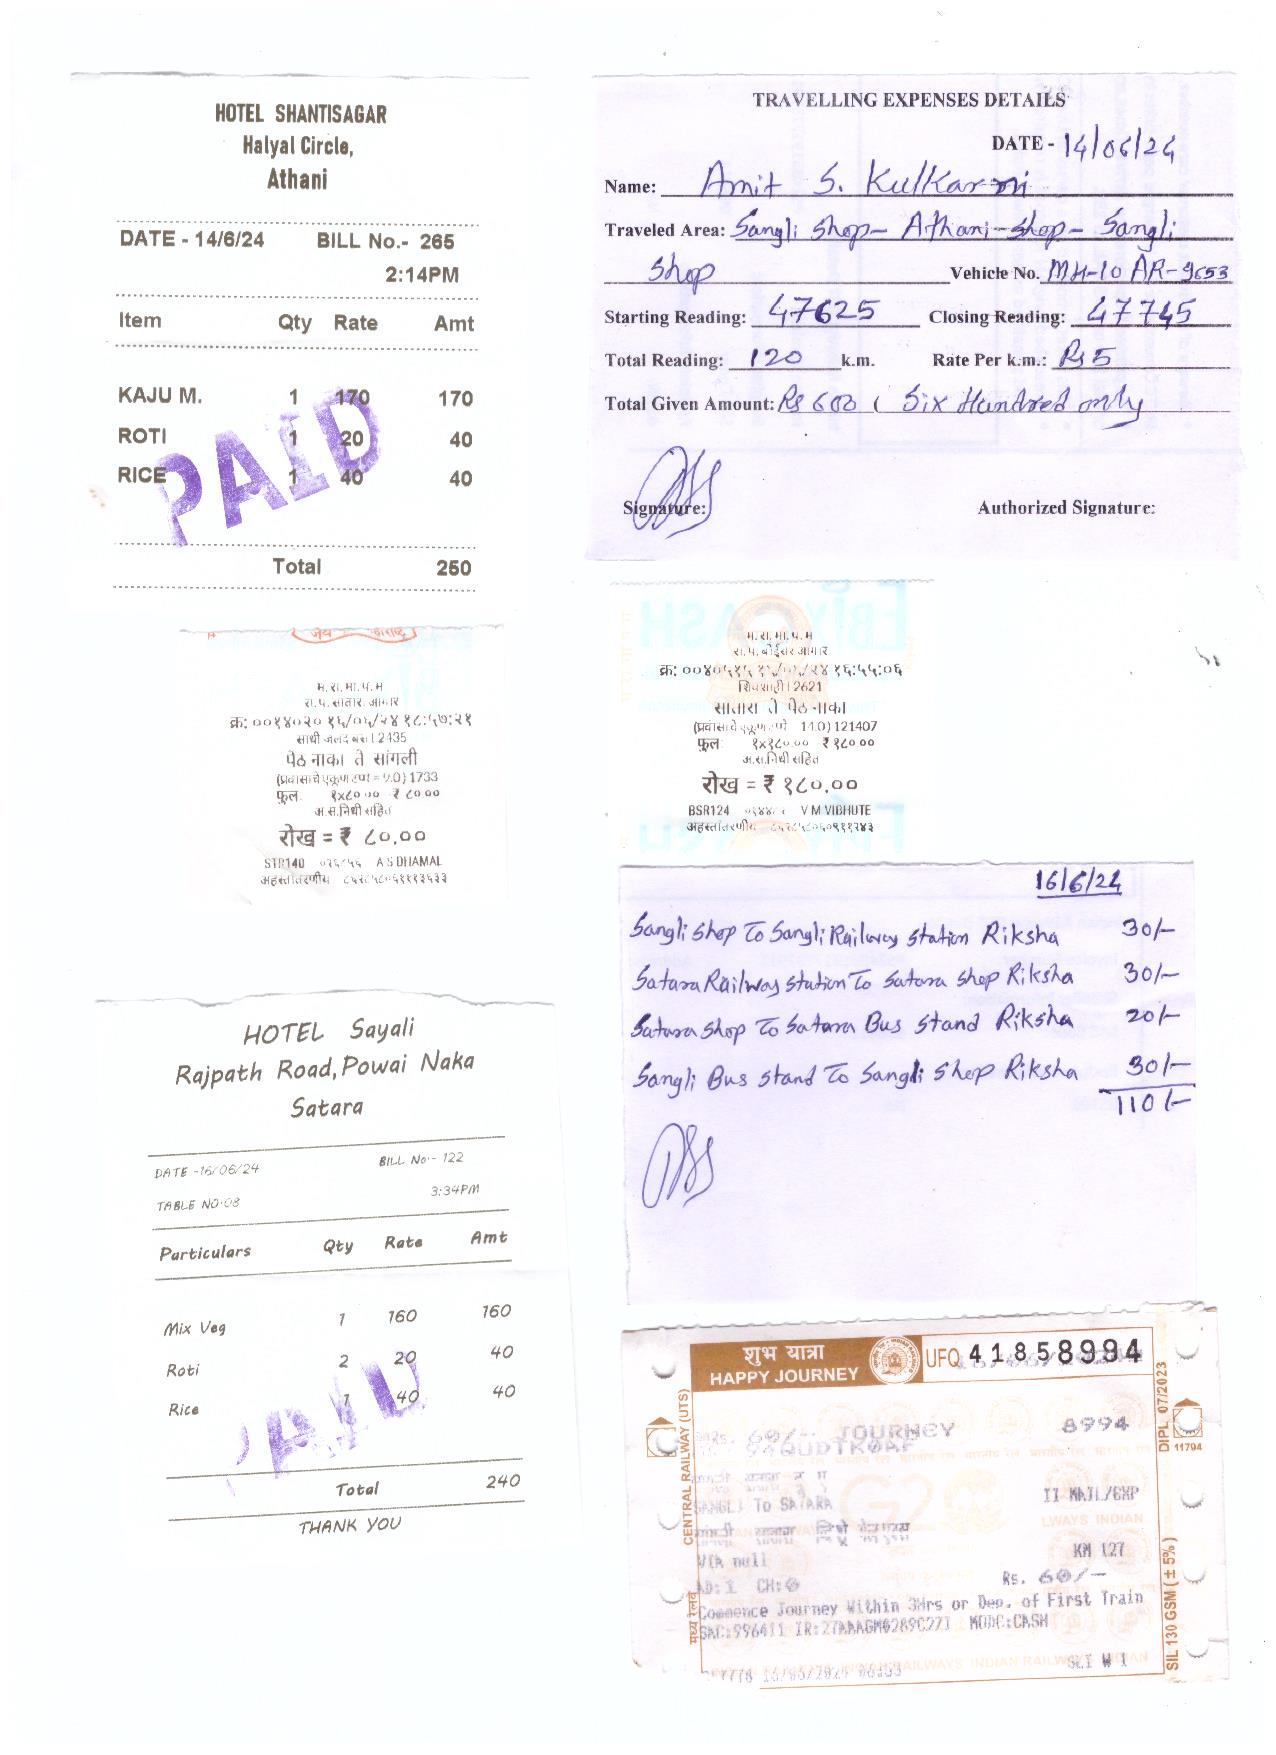 HOTEL SHANTISAGAR
Halyal Circle,
Athani
DATE - 14/6/24 BILL No.- 265
2:14PM
Item Qty Rate Amt
KAJU M. 1 170 170
ROTI 1 20 40
RICE 1 40 40
PAID
Total 250
TRAVELLING EXPENSES DETAILS
DATE - 14/06/24
Name: Amit S. Kulkarni
Traveled Area: Sangli Shop - Athani - Shop - Sangli
Shop Vehicle No. MH-10 AR-9653
Starting Reading: 47625 Closing Reading: 47745
Total Reading: 120 k.m. Rate Per k.m.: Rs 5
Total Given Amount: Rs 600 ( Six Hundred only
Signature: Authorized Signature:
जय
म. रा. मा. प. म
रा. प. सातारा आगार
क्र: ००१४०२० १६/०६/२४ १८:५७:२१
साधी जलद बस । 2435
पेठ नाका ते सांगली
1733
फुल: १x८०.०० ₹ ८०.००
अ.स.निधी सहित
रोख = ₹ ८०.००
STR140 A S DHAMAL
अहस्तांतरणीय
म. रा. मा. प. म
रा. प. बोईसर आगार
१६:५५:०६
शिवशाही । 2621
सातारा ते पेठ नाका
121407
फुल: १x१८०.०० ₹ १८०.००
अ.स.निधी सहित
रोख = ₹ १८०.००
BSR124 V M VIBHUTE
अहस्तांतरणीय
16/6/24
Sangli Shop To Sangli Railway Station Riksha 30/-
Satara Railway Station To Satara Shop Riksha 30/-
Satara Shop To Satara Bus Stand Riksha 20/-
Sangli Bus Stand To Sangli Shop Riksha 30/-
110/-
HOTEL Sayali
Rajpath Road, Powai Naka
Satara
DATE -16/06/24 BILL No:- 122
TABLE NO:08 3:34PM
Particulars Qty Rate Amt
Mix Veg 1 160 160
Roti 2 20 40
Rice 1 40 40
Total 240
THANK YOU
शुभ यात्रा
HAPPY JOURNEY
UFQ 41858994
CENTRAL RAILWAY (UTS)
मध्य रेलवे
DIPL 07/2023
11794
SIL 130 GSM (± 5%)
Rs. 60/- JOURNEY 8994
SANGLI To SATARA II MAIL/EXP
VIA null KM 127
AD:1 CH:0 Rs. 60/-
Commence Journey Within 3Hrs or Dep. of First Train
SAC:996411 IR:27AAAGM0289C2ZI MODE:CASH
16/06/2024